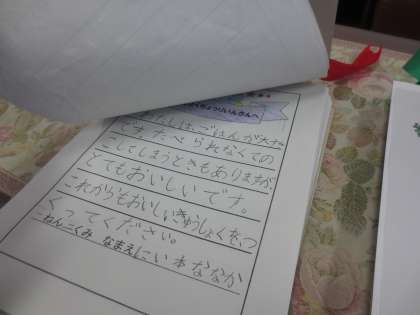 ょくいんさんへ
わたしは、ごはんが大す
きです。たべられなくての
こしてしまうときもありますが、
とてもおいしいです。
これからもおいしいきゅうしょくをつ
くってください。
ねんこくみ なまえにい本ななか